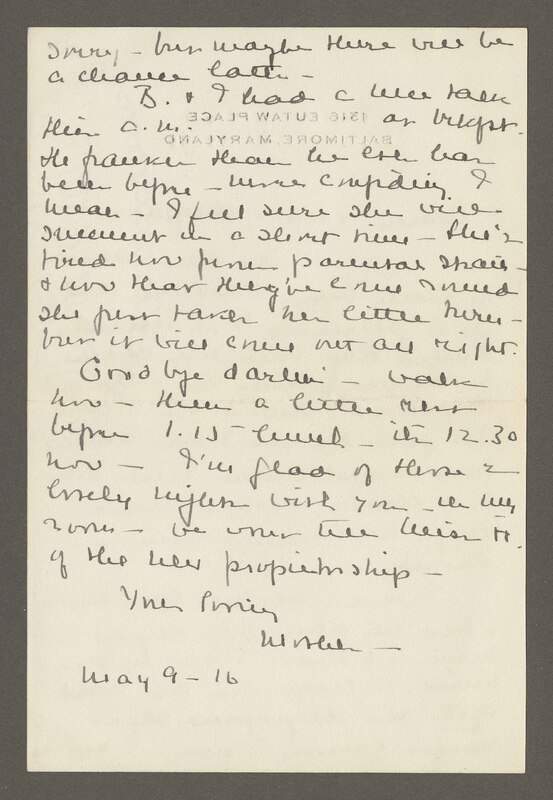 sorry – but maybe there will be
a chance later –
B. & I had a nice talk
this a.m. at bkfst.
1316 EUTAW PLACE
BALTIMORE, MARYLAND
He franker than he ever has
been before – more confiding I
mean – I feel sure she will
in a short time – She's
tired now from parental strain –
& now that they've come round
she just takes her little turn –
but it will come out all right.
Goodbye darlin' – walk
now – then a little rest
before 1.15 lunch – its 12.30
now – I'm glad of those 2
lovely nights with you – in my
room – we won't tell Miss H.
of the new propietorship –
Your loving
Mother –
May 9 – 16